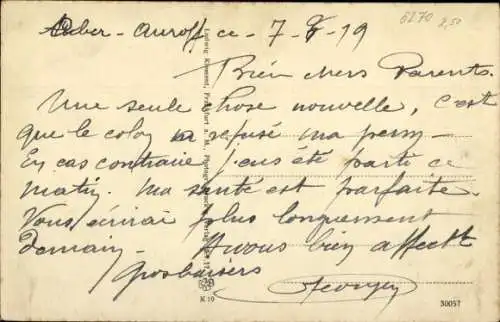 Ober-Auroff ce 7-8-19
6270 2,50
Bien chers Parents.
Une seule chose nouvelle, c'est
que le colo a refusé ma perm-
En cas contraire j'eus été parti ce
matin. Ma santé est parfaite.
Vous écrirai plus longuement
demain- A vous bien affectt
Gros baisers
Georges
Ludwig Klement, Frankfurt a. M.
K 19
30057